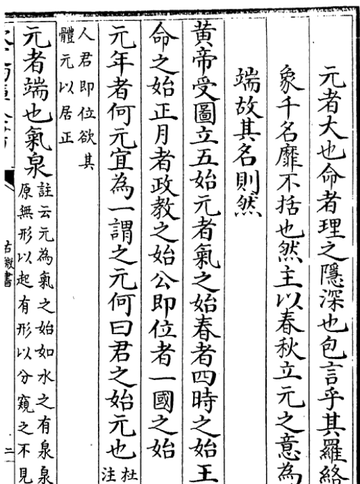 元者大也命者理之隱深也包言乎其羅絡
象千名靡不括也然主以春秋立元之意為
端故其名則然
黃帝受圖立五始元者氣之始春者四時之始王
命之始正月者政教之始公即位者一國之始
元年者何元宜為一謂之元何曰君之始元也 杜注
人君即位欲其
體元以居正
元者端也氣泉 註云元為氣之始如水之有泉泉
原無形以起有形以分窺之不見
古微書
二